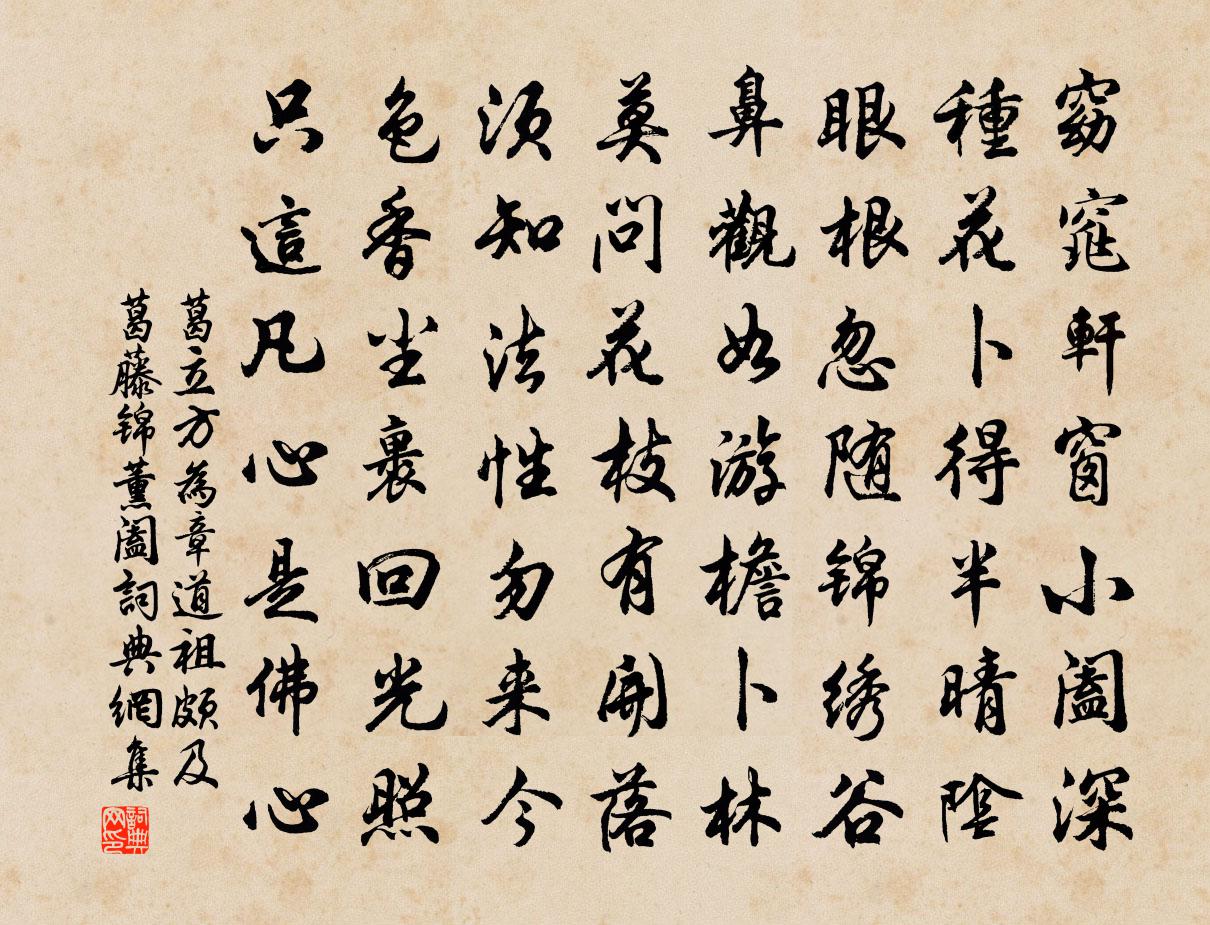 窈窕軒窗小闔深
種花卜得半晴陰
眼根忽随锦绣谷
鼻觀如游檐卜林
莫問花枝有開落
須知法性勿来今
色香尘裏回光照
只這凡心是佛心
葛立方為章道祖頗及
葛藤锦薰闔詞典網集
詞典網印